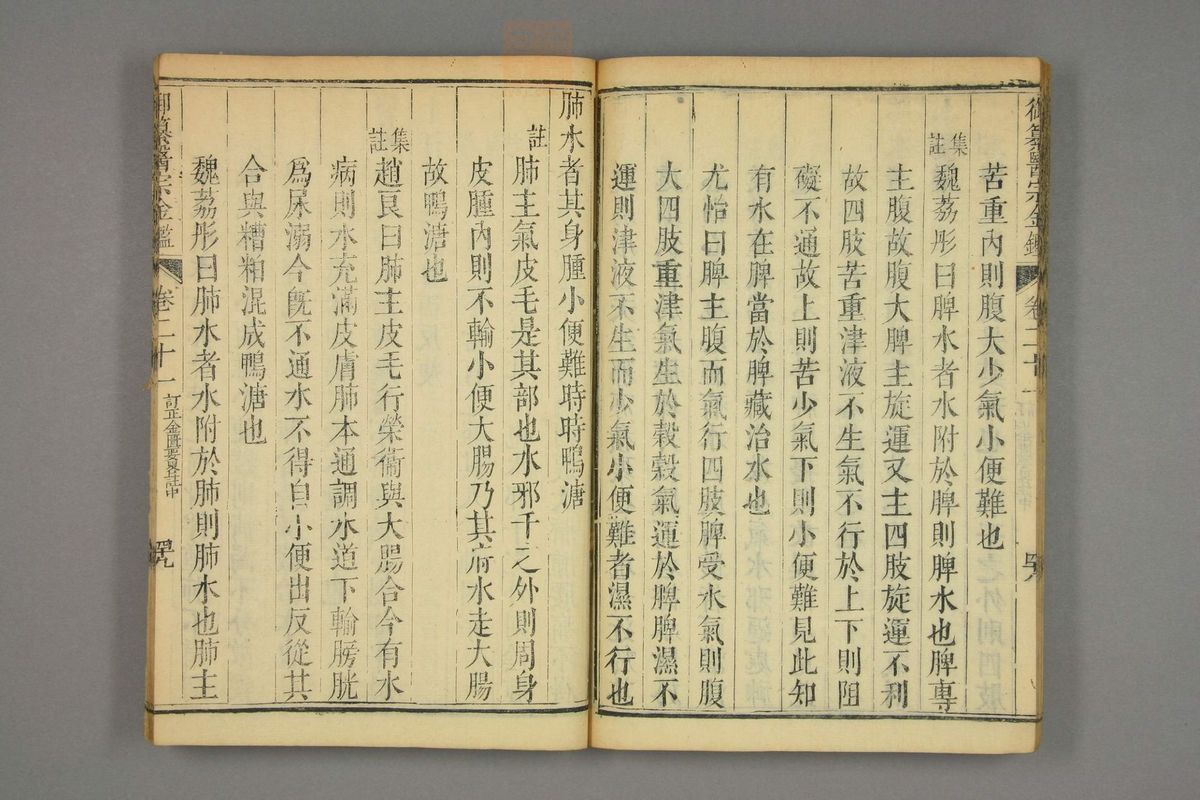 御纂醫宗金鑑 卷二十一 四八
苦重內則腹大少氣小便難也
集註
魏荔彤曰脾水者水附於脾則脾水也脾專
主腹故腹大脾主旋運又主四肢旋運不利
故四肢苦重津液不生氣不行於上下則阻
礙不通故上則苦少氣下則小便難見此知
有水在脾當於脾藏治水也
尤怡曰脾主腹而氣行四肢脾受水氣則腹
大四肢重津氣生於穀穀氣運於脾脾濕不
運則津液不生而少氣小便難者濕不行也
肺水者其身腫小便難時時鴨溏
註
肺主氣皮毛是其部也水邪干之外則周身
皮腫內則不輸小便大腸乃其府水走大腸
故鴨溏也
集註
趙良曰肺主皮毛行榮衞與大腸合今有水
病則水充滿皮膚肺本通調水道下輸膀胱
爲尿溺今旣不通水不得自小便出反從其
合與糟粕混成鴨溏也
魏荔彤曰肺水者水附於肺則肺水也肺主
御纂醫宗金鑑 卷二十一 訂正金匱要畧註中 四九